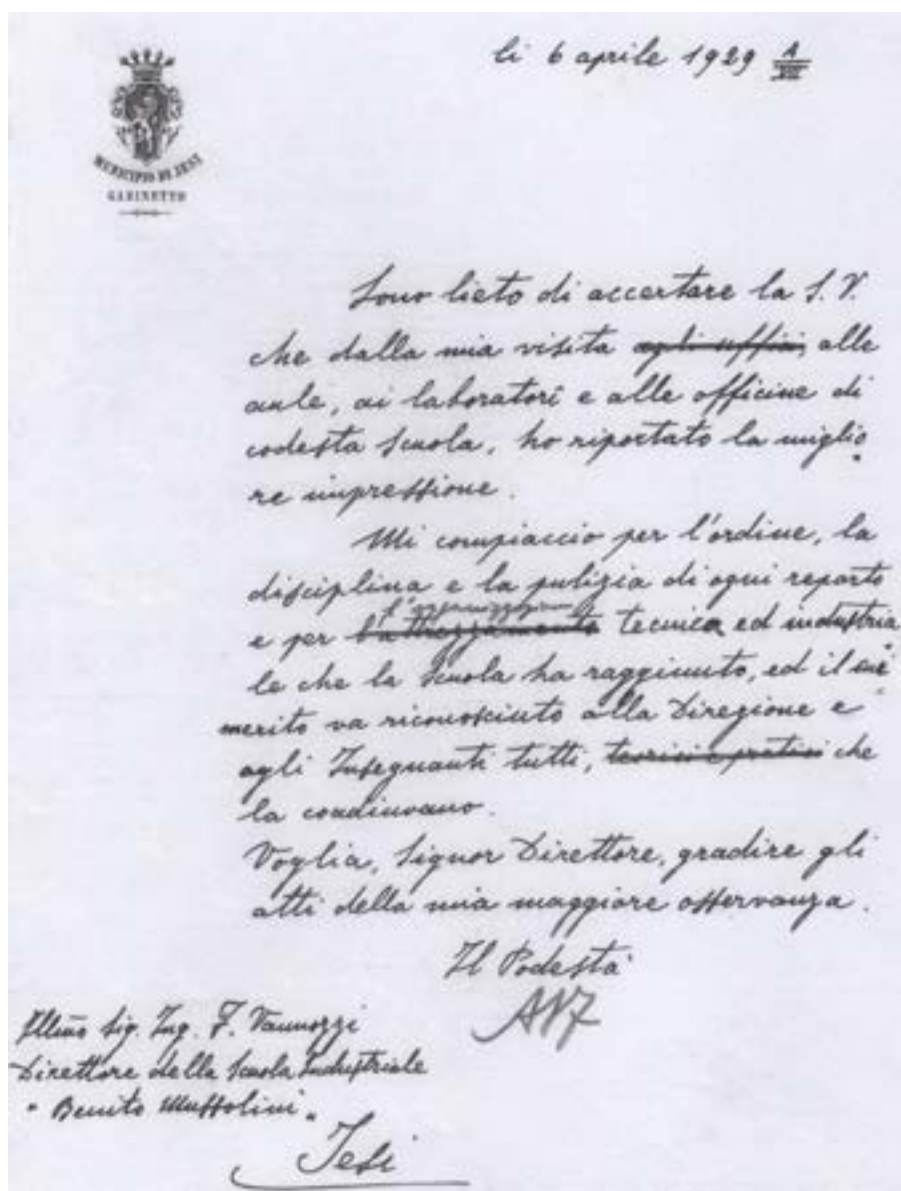 li 6 aprile 1929 A/VII
MUNICIPIO DI JESI
GABINETTO
Sono lieto di accertare la S. V.
che dalla mia visita agli uffici, alle
aule, ai laboratori e alle officine di
codesta Scuola, ho riportato la miglio
re impressione.
Mi compiaccio per l'ordine, la
disciplina e la pulizia di ogni reparto
l'organizzazione
e per l'attrezzamento tecnica ed industria
le che la Scuola ha raggiunto, ed il
merito va riconosciuto alla Direzione e
agli Insegnanti tutti, teorici e pratici che
la coadiuvano.
Voglia, Signor Direttore, gradire gli
atti della mia maggiore osservanza.
Il Podestà
Illmo Sig. Ing. F. Vannozzi
Direttore della Scuola Industriale
"Benito Mussolini"
Jesi